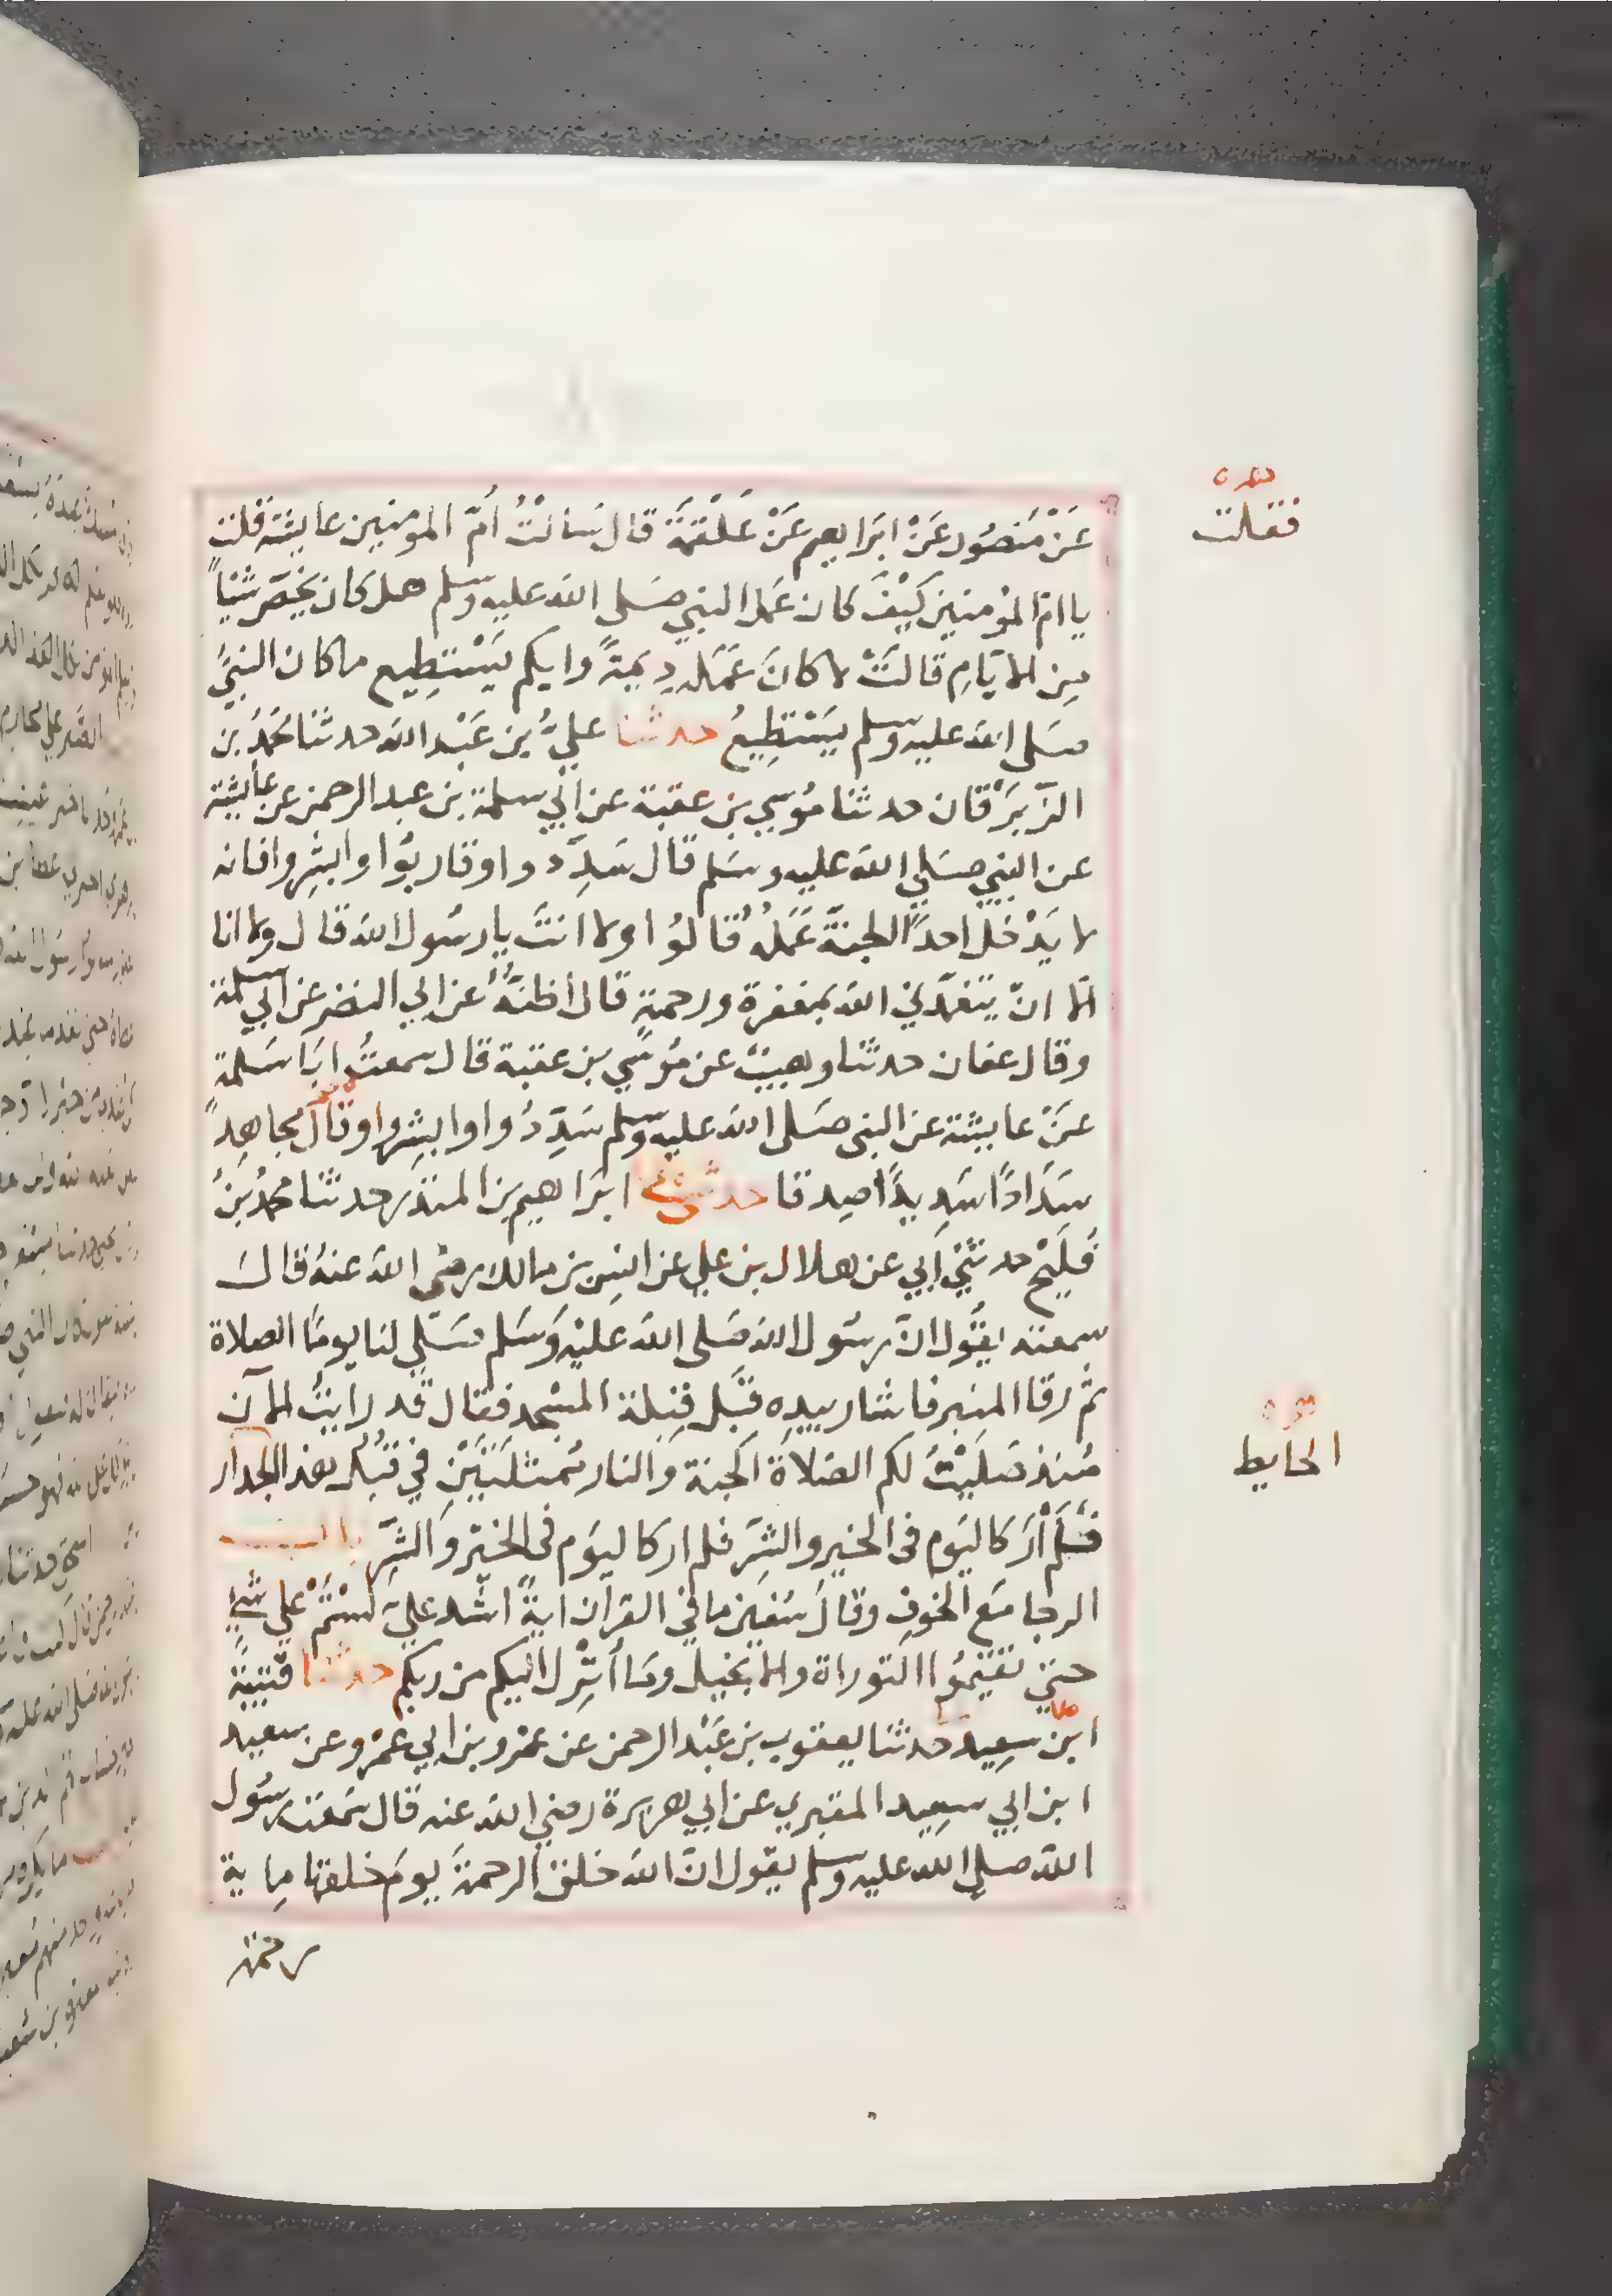 عَنْ مَنصُور عَنْ ابرَاهيم عَنْ عَلْقمَة قال سَألتُ أمّ المومنين عايشة قلت
فقلت
يا امّ المؤمنين كَيْفَ كان عَمَل النبي صَلى الله عليه وسلم هل كان يخصّ شيًا
مِن الايَّامِ قالتْ لا كانَ عَمَله دِيمَةً وايكم يَسْتطِيع ما كان النبيُّ
صَلى الله عليه وسلم يَسْتطِيعُ حدثنا عليُّ بن عَبْد الله حدثنا محَمدُ بن
الزّبرْقان حدثنا مُوسي بن عقبة عن أبي سلمة بن عبد الرحمن عن عايشة
عن النبي صَلي الله عليه وسَلم قال سَدِّدوا وقاربُوا وابشِروا فانه
لا يَدْخل احدًا الجنةَ عَمَلهُ قالوُا ولا انتَ يا رسُول الله قال ولا انا
الا انْ يتغمّدَنِي الله بمغفرة ورحمةٍ قال أظنّهُ عن ابي النضر عن ابي سلمة
وقال عفان حدثنا وهيبٌ عن مُوسَي بن عقبة قال سمعتُ ابَا سَلمة
عَنْ عايشة عن النبي صَلى الله عليه وسلم سَدِّدُوا وابشِروا وقال مجاهدً
سَدَادًا سَدِيدًا صِدقا حدثني ابرَاهيم بن المنذر حدثنا محمدُ بنُ
فُلَيْح حدثني أبي عن هلال بن علي عن انسِ بن مالك رضى الله عنهُ قالَ
سمعته يقُول انّ رسُول الله صَلى الله عليْه وَسَلم صَلّي لنا يومًا الصلاة
ثمّ رقا المنبر فاشار بيدِهِ قِبَل قِبْلة المسْجد فقال قد رايتُ الآن
مُنذ صَليْتُ لكم الصَلاة الجنة والنار مُمثلَتَيْنِ في قُبُل هذا الجدَار
الحايط
فلَمْ أرَ كاليَوم في الخير والشَرّ فلم ار كاليوَم في الخيْر والشَرِّ باب
الرجا مَع الخوفِ وقالَ سُفين ما في القرآن ايةً اشد عليّ لسْتُمْ علي شيْءٍ
حتي تقيمُوا التوراة والانجيل ومَا أنْزِل اليكم من ربكم حدثنا قتيبَة
ابن سعِيد حدثنا يعقوب بن عَبْد الرحمن عن عمْرو بن ابي عمْرو عن سعيد
ابن ابي سعِيد المقبري عن ابي هريرة رضي الله عنه قال سَمعت رسُول
الله صلي الله عليه وسلم يقول انّ الله خلق الرحمةَ يومَ خلقها مِاية
رحمة